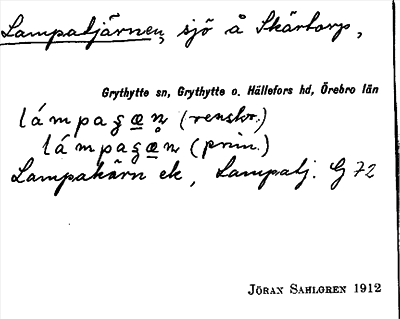 Lampatjärnen, sjö å Skärtorp,
Grythytte sn, Grythytte o. Hällefors hd, Örebro län
(renskr.)
(prim.)
Lampakärn ek, Lampatj. G 72
JÖRAN SAHLGREN 1912